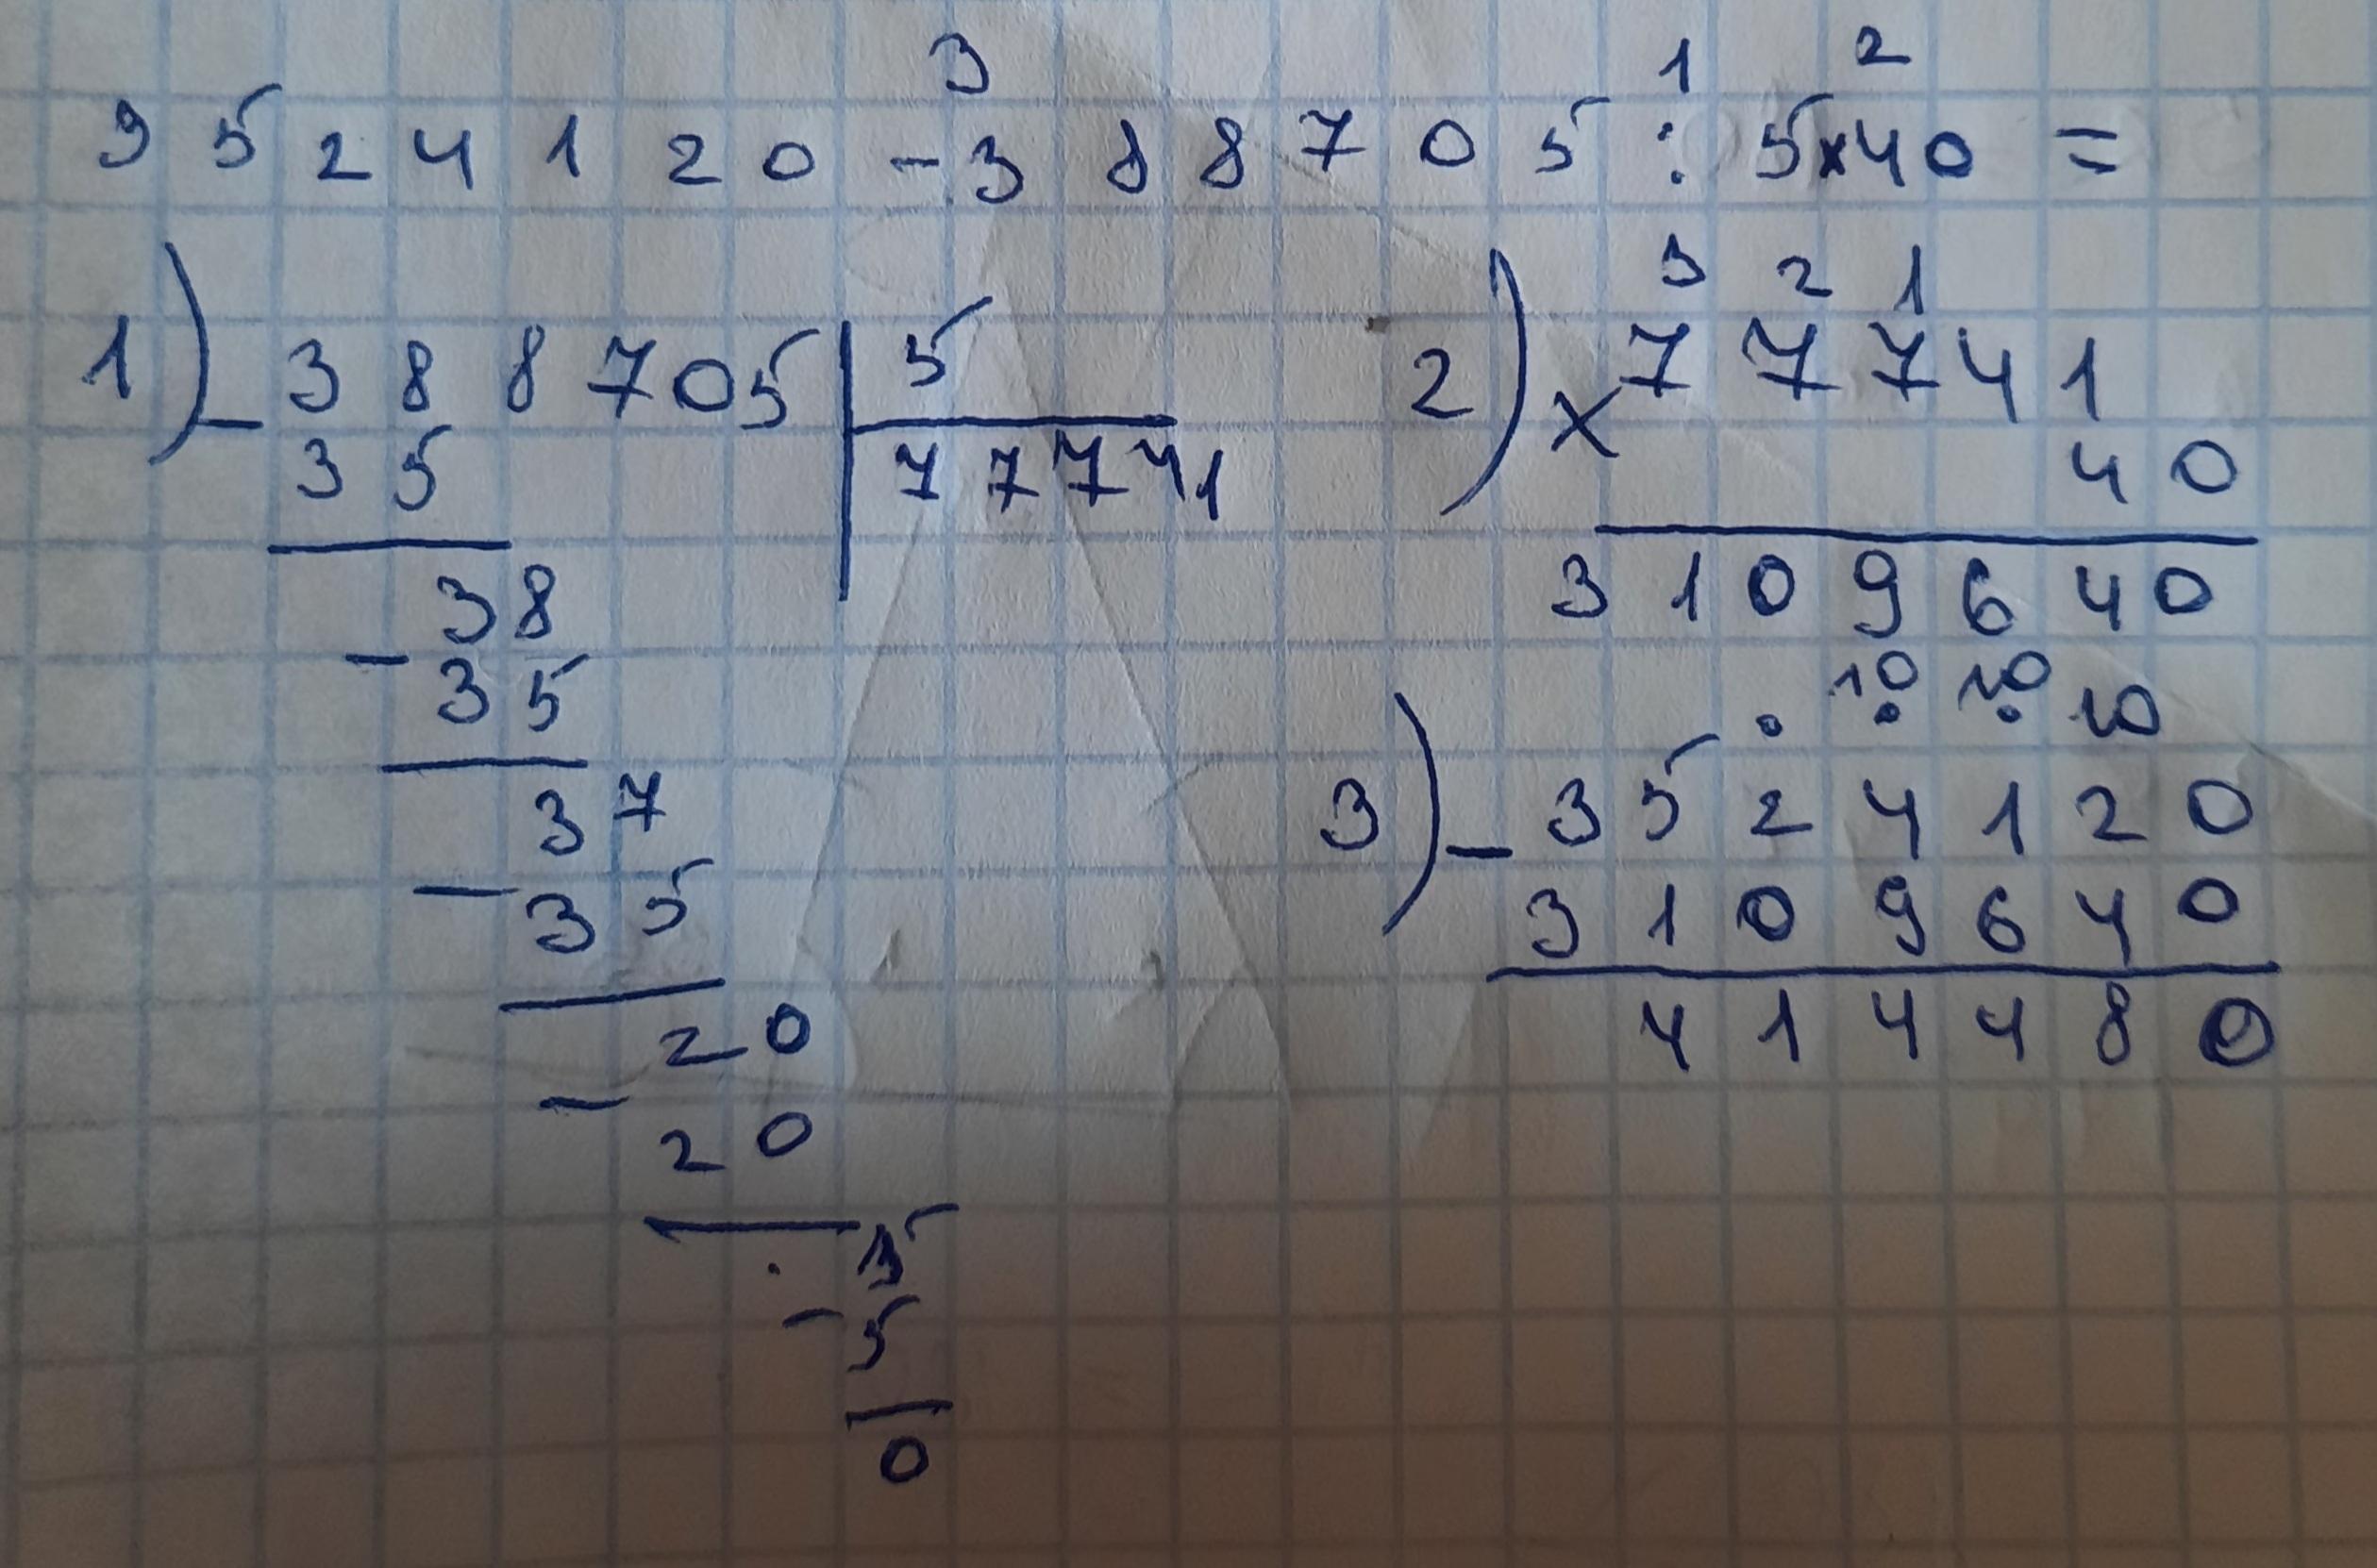 3 1 2
3524120 - 388705 : 5 x 40 =
1) - 388705 | 5
35 77741
38
- 35
37
- 35
20
- 20
5
- 5
0
3 2 1
2) x 77741
40
3109640
10 10
. . . 10
3) - 3524120
3109640
414480